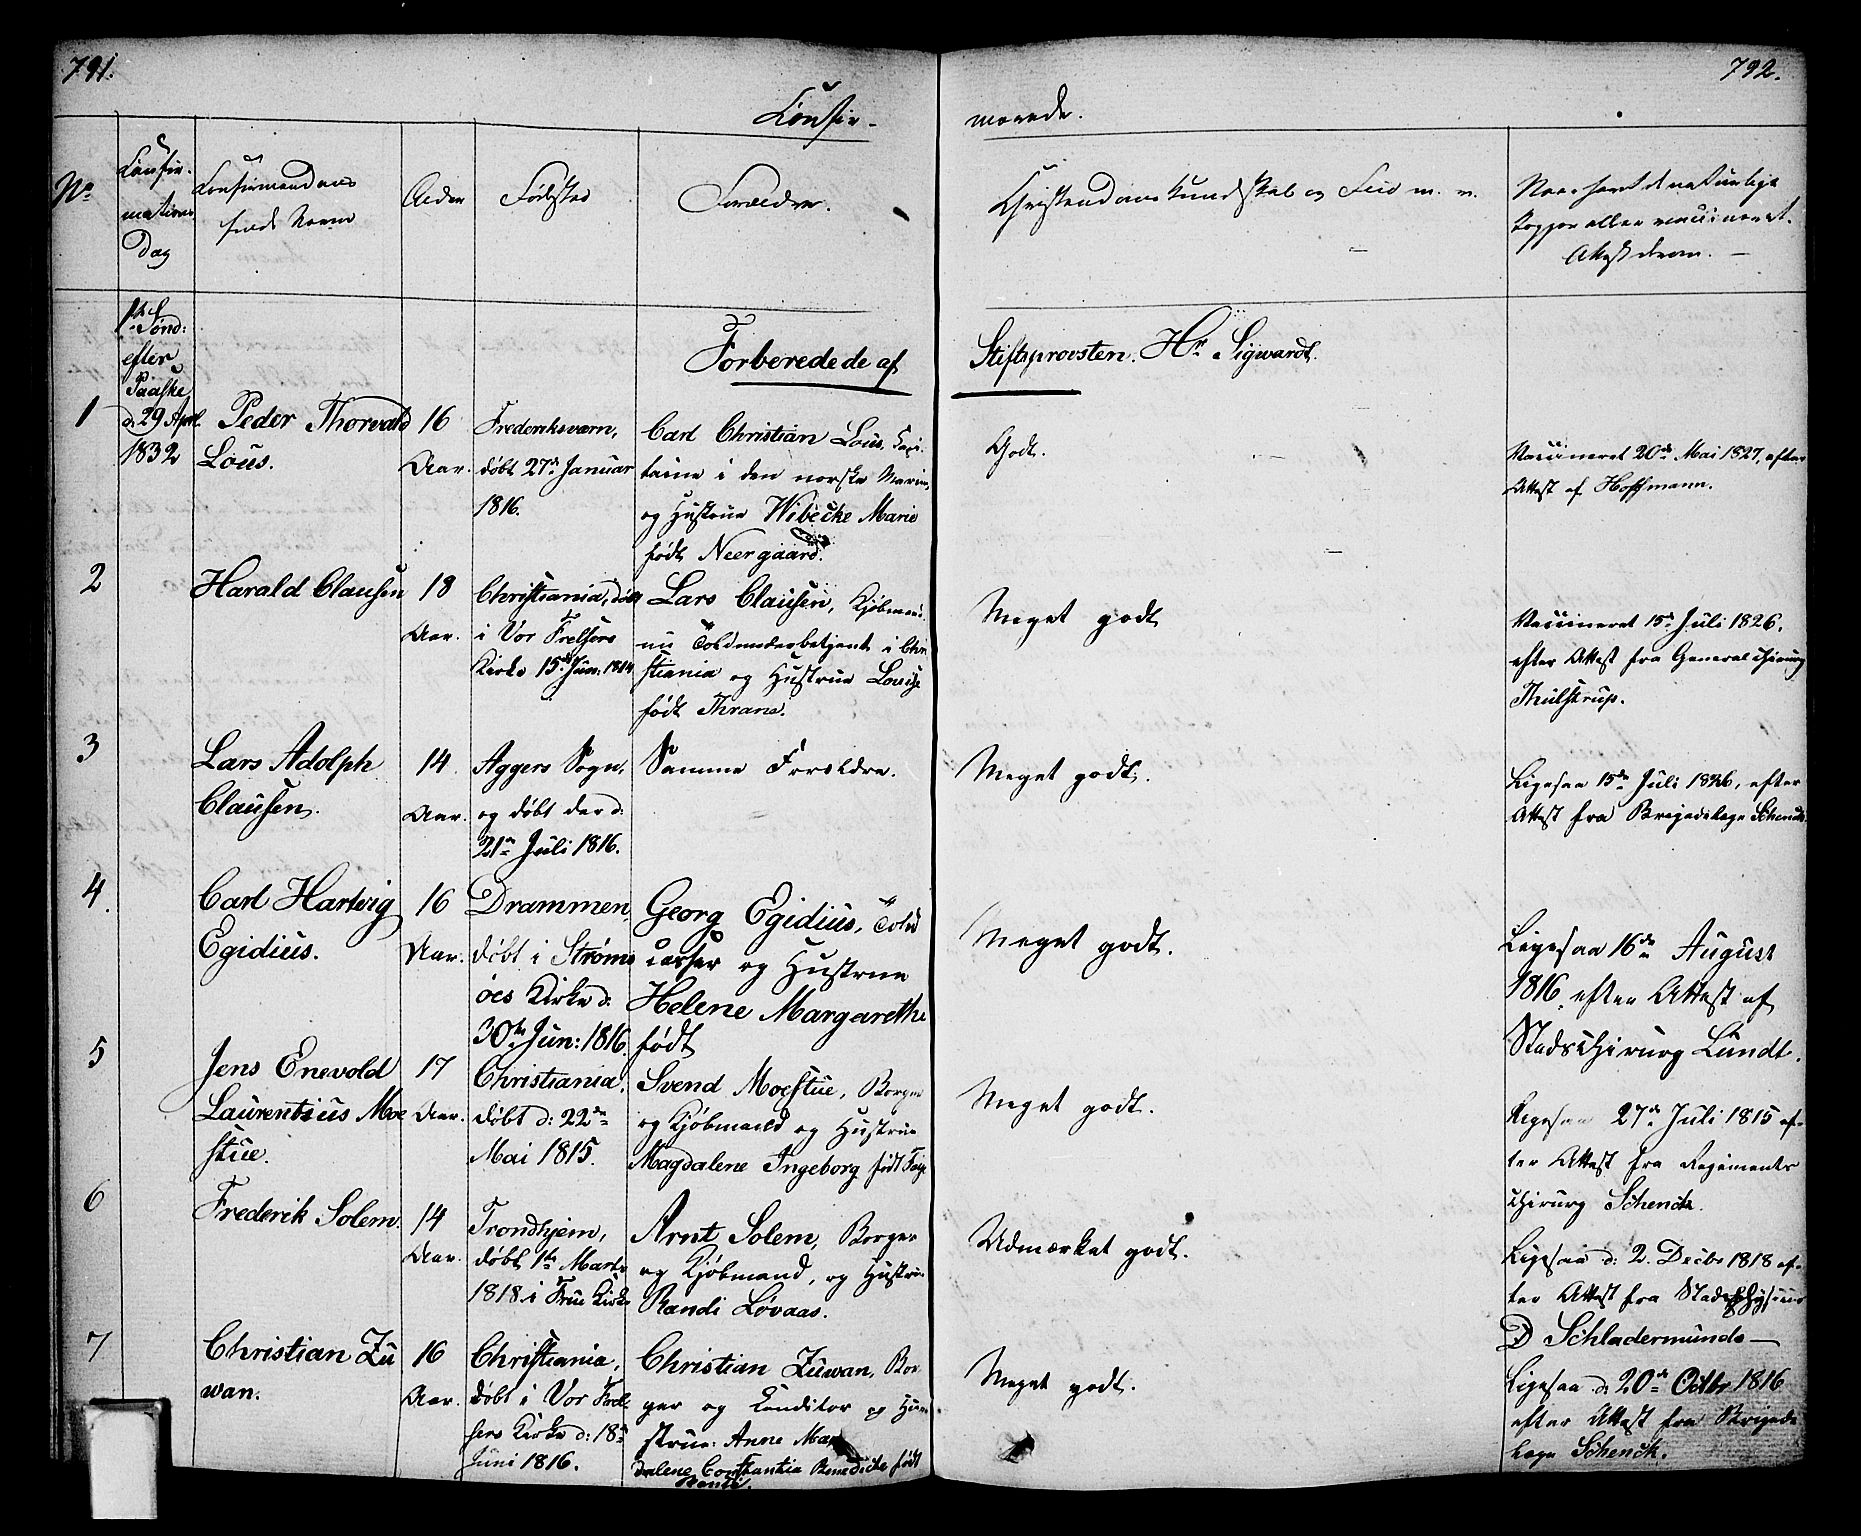 791.
792.
Confir-
merede.
No
Confir-
mations
Dag
Confirmandens
fulde Navn
Alder
Fødested
Forældre.
Christendomskundskab og Flid m. v.
Naar havt de naturlige
Kopper eller vaccineret.
Attest derom. —
1ste Sønd:
efter
Paaske
d. 29 April
1832
Forberedede af
Stiftsprovsten Hr. Sigwardt.
1
Peder Thorvald
Lous.
16
Aar.
Frederiksværn,
døbt 27de Januar
1816.
Carl Christian Lous, Capi-
taine i den norske Marine,
og Hustrue Wibecke Marie
født Neergaard.
Godt.
Vaccineret 20de Mai 1827, efter
Attest af Hoffmann.
2
Harald Clausen
18
Aar.
Christiania, døbt
i Vor Frelsers
Kirke 15de Jun: 1814
Lars Clausen, Kjøbmand
nu Toldunderbetjent i Chri
stiania og Hustrue Lovise
født Thrane.
Meget godt
Vaccineret 15de Juli 1826,
efter Attest fra General Chirurg
Thulstrup.
3
Lars Adolph
Clausen.
14
Aar.
Aggers Sogn,
og døbt der d:
21de Juli 1816.
Samme Forældre.
Meget godt.
Ligesaa 15de Juli 1826, efter
Attest fra Brigadelæge Schenck
4.
Carl Hartvig
Egidius.
16
Aar.
Drammen,
døbt i Strøms
öes Kirke d:
30te Jun: 1816.
Georg Egidius, Told
casser og Hustrue
Helene Margarethe
født
Meget godt.
Ligesaa 16de August
1816, efter Attest af
Stadschirurg Lundt.
5
Jens Enevold
Laurentius Moe
stue.
17
Aar.
Christiania,
døbt d: 22de
Mai 1815.
Svend Moestue, Borger
og Kjøbmand og Hustrue
Magdalene Ingeborg født
Meget godt.
Ligesaa 27de Juli 1815 ef-
ter Attest fra Regiments
chirurg Schenck.
6
Frederik Solem.
14
Aar.
Trondhjem,
døbt 1te Marts
1818 i Frue Kirke
Arnt Solem, Borger
og Kjøbmand, og Hustrue
Randi Løvaas.
Udmærket godt.
Ligesaa d: 2. Decbr 1818 ef-
ter Attest fra Stadsphysicus
D Schladermundo
7
Christian Zu
wan.
16
Aar.
Christiania,
døbt i Vor Frel
sers Kirke d: 18de
Juni 1816.
Christian Zuwan, Bor-
ger og Conditor og Hu-
strue: Anne Mag
dalene Constantia Benedicte født
Meget godt.
Ligesaa d. 20de Octbr 1816
efter Attest fra Brigade
læge Schenck.